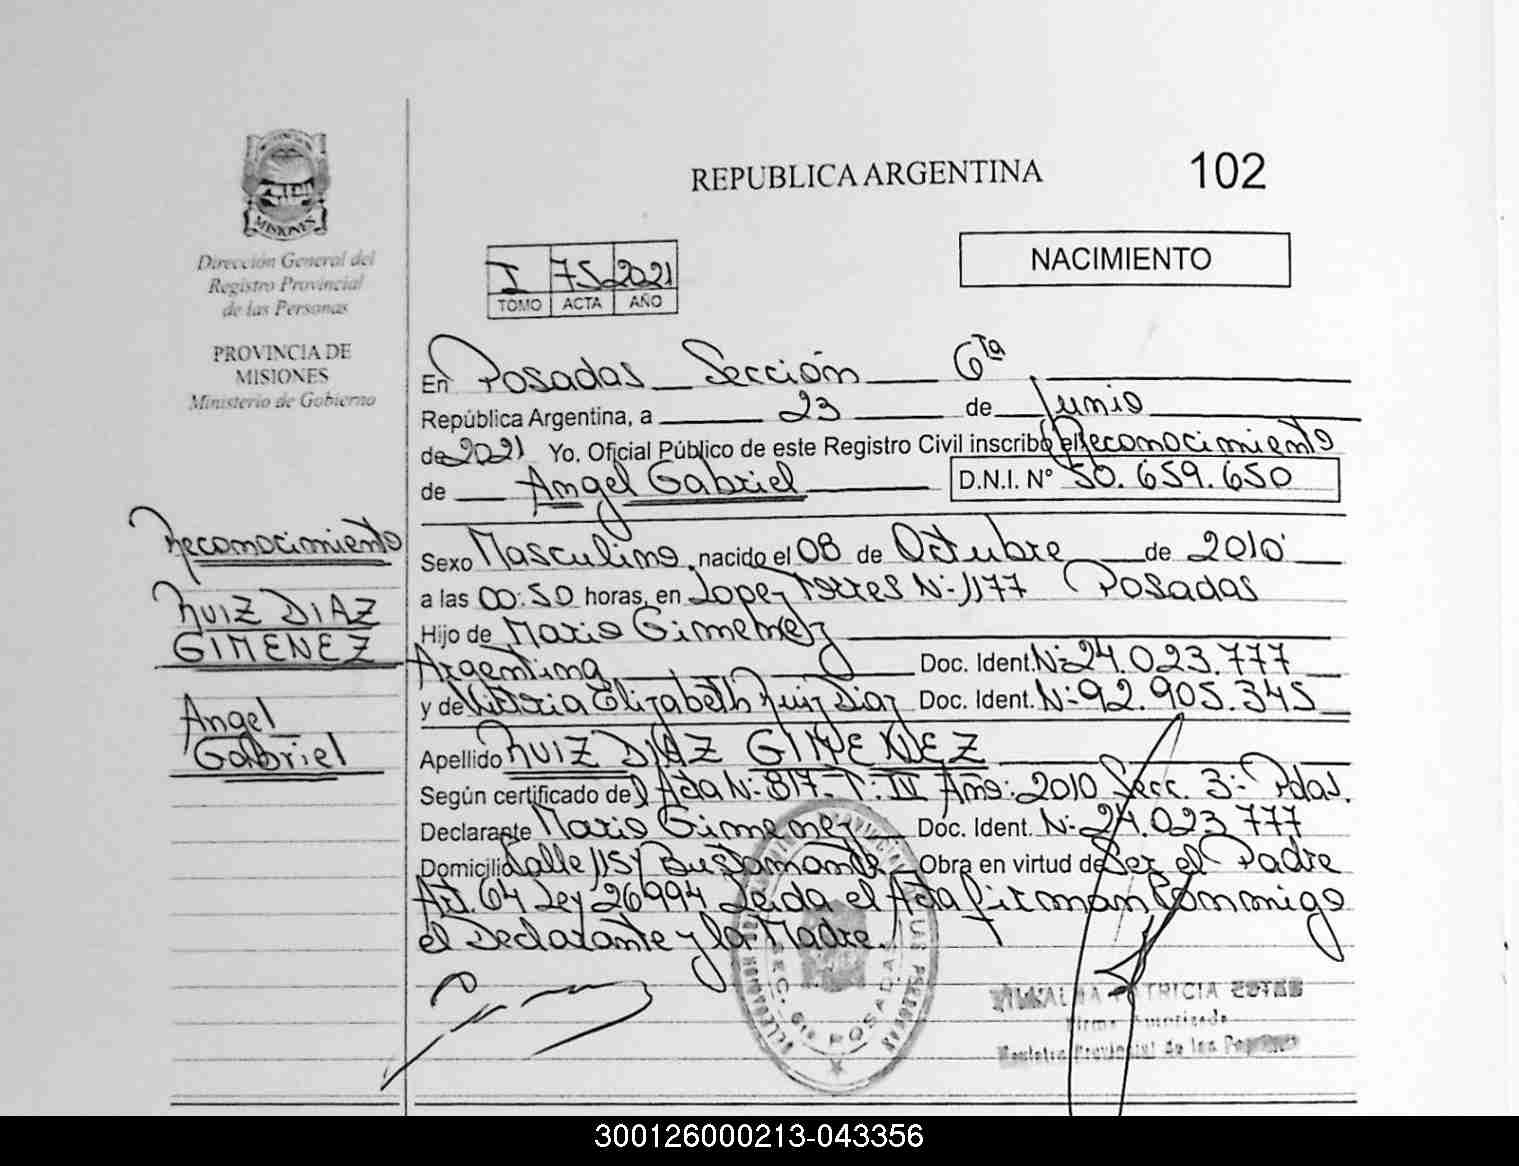 REPUBLICA ARGENTINA
102
MISIONES
Dirección General del
Registro Provincial
de las Personas
PROVINCIA DE
MISIONES
Ministerio de Gobierno
I 75 2021
TOMO ACTA AÑO
NACIMIENTO
En Posadas Sección 6ta
República Argentina, a 23 de Junio
de 2021 Yo. Oficial Público de este Registro Civil inscribo el Reconocimiento
de Angel Gabriel D.N.I. Nº 50.659.650
Reconocimiento
RUIZ DIAZ
GIMENEZ
Angel
Gabriel
Sexo Masculino, nacido el 08 de Octubre de 2010
a las 00:50 horas, en Lopez Torres N-1177 Posadas
Hijo de Mario Gimenez
Argentina Doc. Ident. N:24.023.777
y de Victoria Elizabeth Ruiz Diaz Doc. Ident. N:92.905.345
Apellido RUIZ DIAZ GIMENEZ
Según certificado del Acta N:817-T:IV Año:2010 Secc. 3:- Pdas.
Declarante Mario Gimenez Doc. Ident. N:24.023.777
Domicilio Calle 115 y Bustamante Obra en virtud de Ser el Padre
Art. 64 Ley 26994 Leida el Acta firman Conmigo
el Declarante y la Madre.
SEC. 6ta POSADAS
PATRICIA
Firma Autorizada
Registro Provincial de las Personas
300126000213-043356